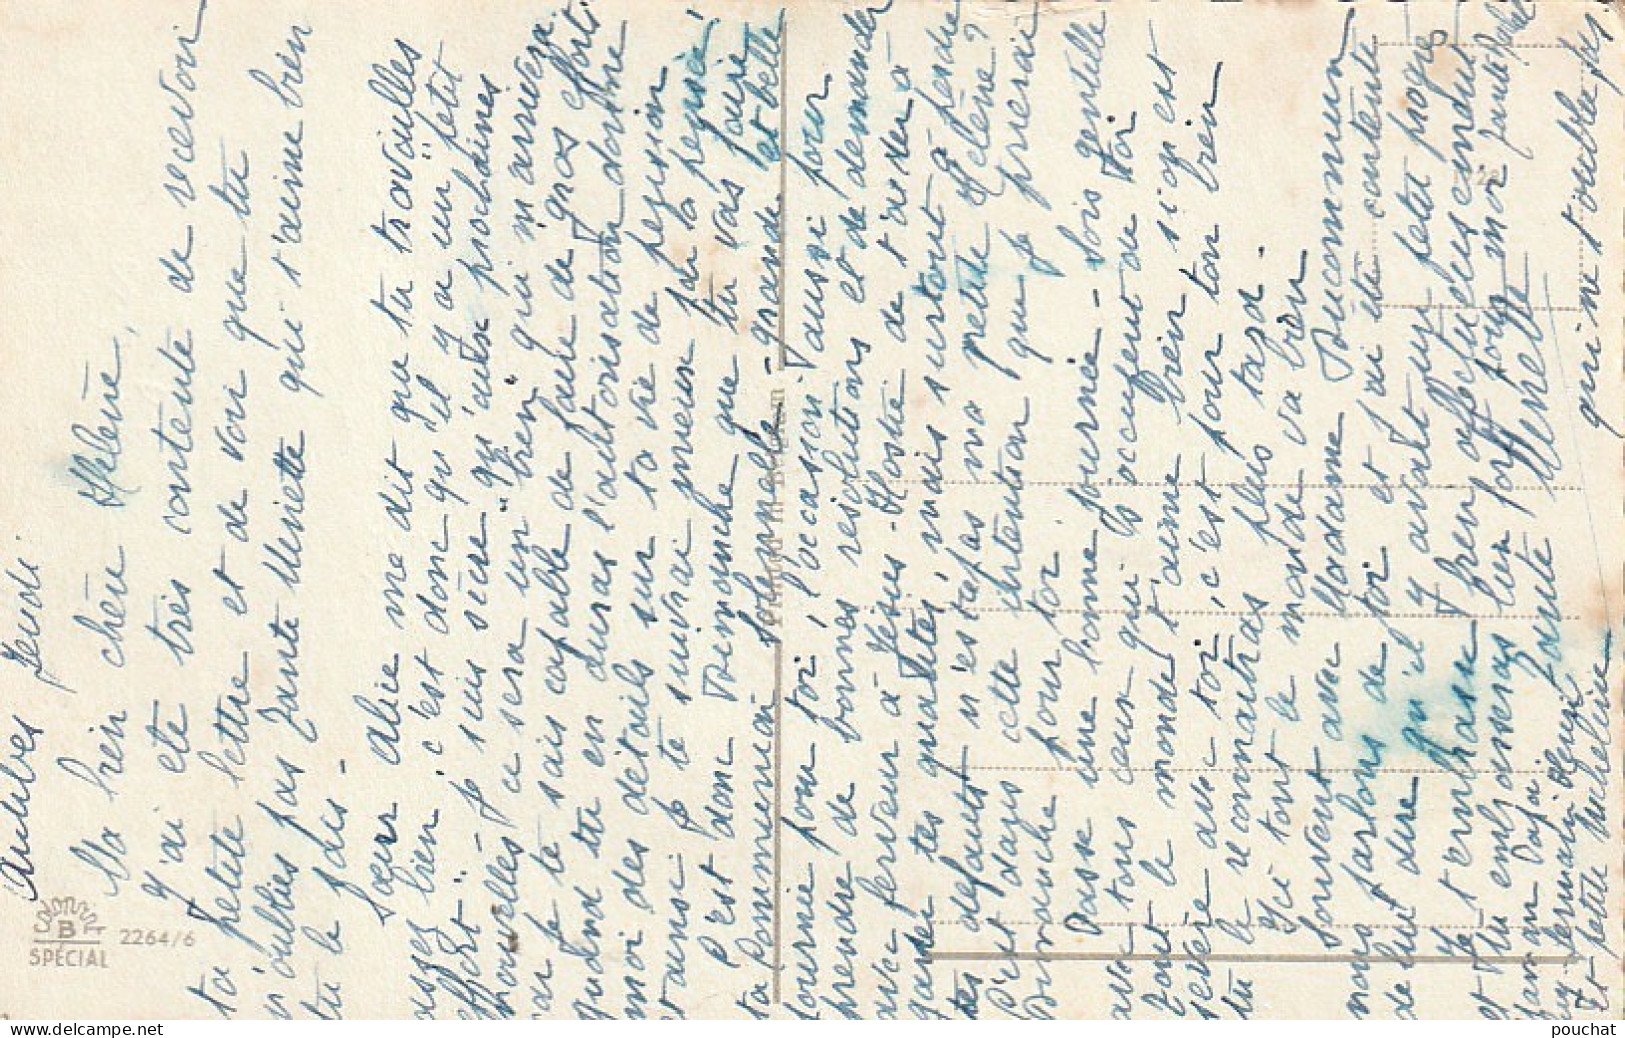 Aulbes Jeudi
Ma bien chère Hélène,
J'ai été très contente de recevoir
ta petite lettre et de voir que tu
n'oublies pas Tante Nenette qui t'aime bien
tu le sais -
Sœur Alice me dit que tu travailles
assez bien, c'est donc qu'il y a un petit
effort" - Je suis sûre qu'aux prochaines
nouvelles ce sera un "bien" qui m'arrivera.
car je te sais capable de faire de gros efforts
quand tu en auras l'autorisation donne
moi des détails sur ta vie de pension
et ainsi je te suivrai mieux par la pensée,
C'est donc Dimanche que tu vas faire
ta Communion Solennelle - grande et belle
journée pour toi, l'occasion aussi pour
prendre de bonnes résolutions et de demander
avec ferveur à Jésus-Hostie de t'aider à
garder tes qualités, mais surtout à perdre
tes défauts n'est ce pas ma petite Hélène?
C'est dans cette intention que je prierai
Dimanche pour toi.
Passe une bonne journée - Sois gentille
avec tous ceux qui s'occupent de toi
Tout le monde t'aime bien, si on est
sévère avec toi, c'est pour ton bien
tu le reconnaîtras plus tard.
Ici tout le monde va bien
Souvent avec Madame Bucommun
nous parlons de toi et j'ai été contente
de lui dire qu'il y avait un petit progrès
Je t'embrasse bien affectueusement
et tu embrasseras bien fort pour moi
Tante Nenette
qui ne t'oublie pas
et petite Micheline
B
SPÉCIAL
2264/6
pouchat
www.delcampe.net